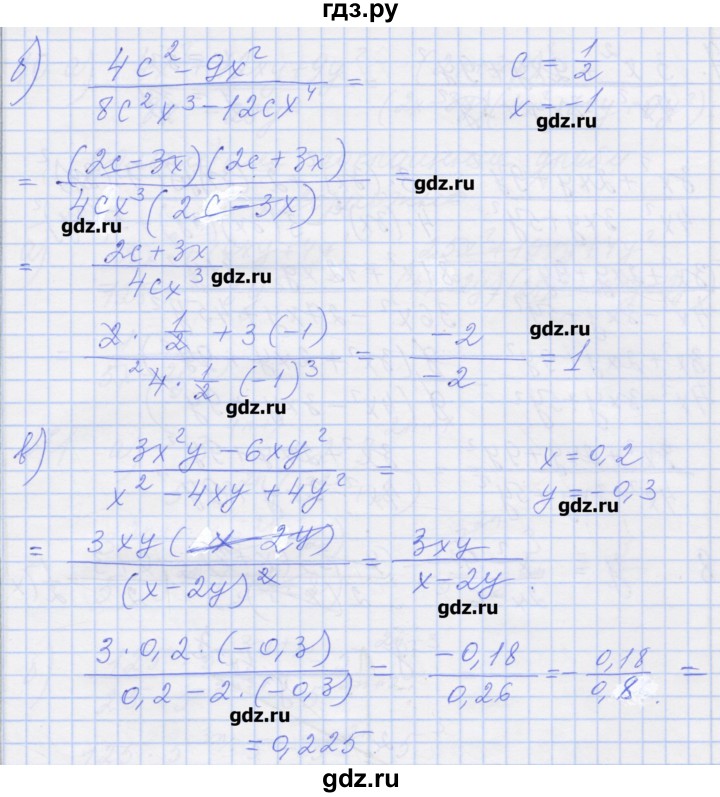 гдз.ру
б) (4c² - 9x²)/(8c²x³ - 12cx⁴) =     c = 1/2
x = -1
gdz.ru
= ((2c - 3x)(2c + 3x))/(4cx³(2c - 3x)) =
gdz.ru
gdz.ru
= (2c + 3x)/(4cx³)
gdz.ru
(2 · 1/2 + 3(-1))/(4 · 1/2 (-1)³) = (-2)/(-2) = 1
2
gdz.ru
gdz.ru
в) (3x²y - 6xy²)/(x² - 4xy + 4y²) =     x = 0,2
y = -0,3
gdz.ru
= (3xy(x - 2y))/((x - 2y)²) = (3xy)/(x - 2y).
gdz.ru
(3 · 0,2 · (-0,3))/(0,2 - 2 · (-0,3)) = (-0,18)/(0,26) = - (0,18)/(0,8) =
gdz.ru
= 0,225
gdz.ru